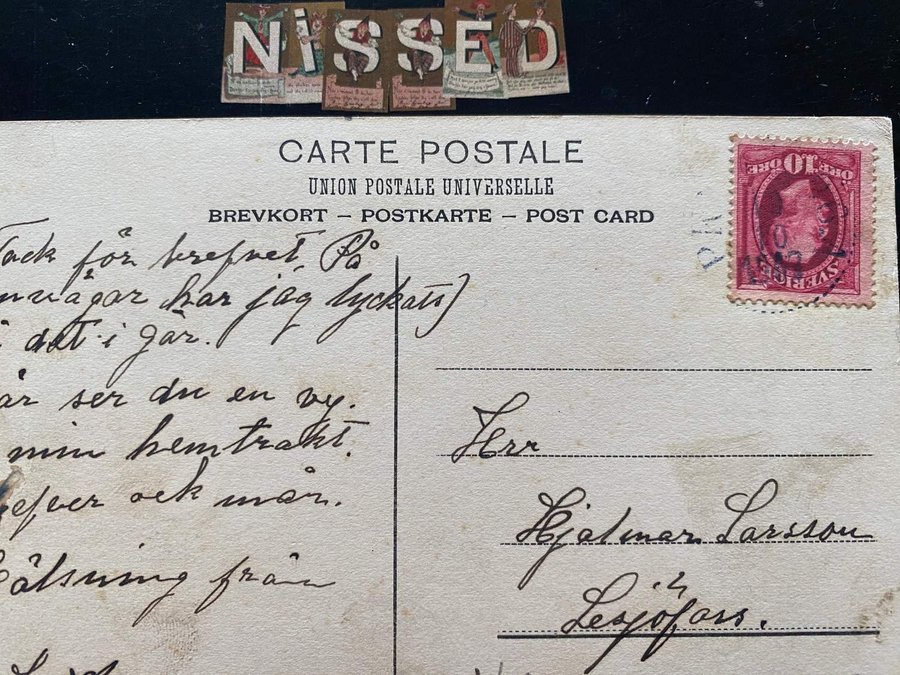 NiSSED
CARTE POSTALE
UNION POSTALE UNIVERSELLE
BREVKORT – POSTKARTE – POST CARD
10 ÖRE
SVERIGE
Tack för brefvet På
har jag lyckats
i det i går.
är ser du en vy.
min hemtrakt.
efver och mår.
från
Herr
Hjalmar Larsson
Lesjöfors.